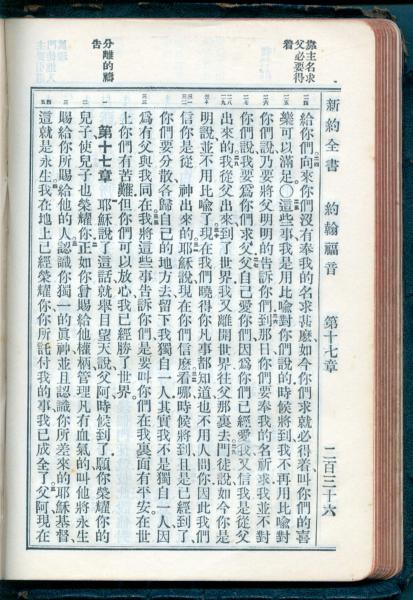 新約全書 約翰福音 第十七章 二百三十六
靠主名求
父必要得
着
分離的禱
告
給你們、向來你們沒有奉我的名求甚麽、如今你們求就必得着、叫你們的喜
樂可以滿足。〇這些事、我是用比喻對你們說的、時候將到、我不再用比喻對
你們說、乃要將父明明的告訴你們、到那日你們要奉我的名祈求、我並不對
你們說、我要爲你們求父、父自己愛你們、因爲你們已經愛我、又信我是從父
出來的。我從父出來、到了世界、我又離開世界、往父那裏去。門徒說、如今你是
明說、並不用比喻了。現在我們曉得你凡事都知道、也不用人問你、因此我們
信你是從 神出來的。耶穌說、現在你們信麽。看哪、時候將到、且是已經到了、
你們要分散、各歸自己的地方去、留下我獨自一人、其實我不是獨自一人、因
爲有父與我同在。我將這些事告訴你們、是要叫你們在我裏面有平安、在世
上你們有苦難、但你們可以放心、我已經勝了世界。
第十七章 耶穌說了這話、就舉目望天說、父阿、時候到了、願你榮耀你的
兒子、使兒子也榮耀你、正如你曾賜給他權柄、管理凡有血氣的、叫他將永生
賜給你所賜給他的人、認識你獨一的眞神、並且認識你所差來的耶穌基督、
這就是永生。我在地上已經榮耀你、你所託付我的事、我已成全了。父阿、現在